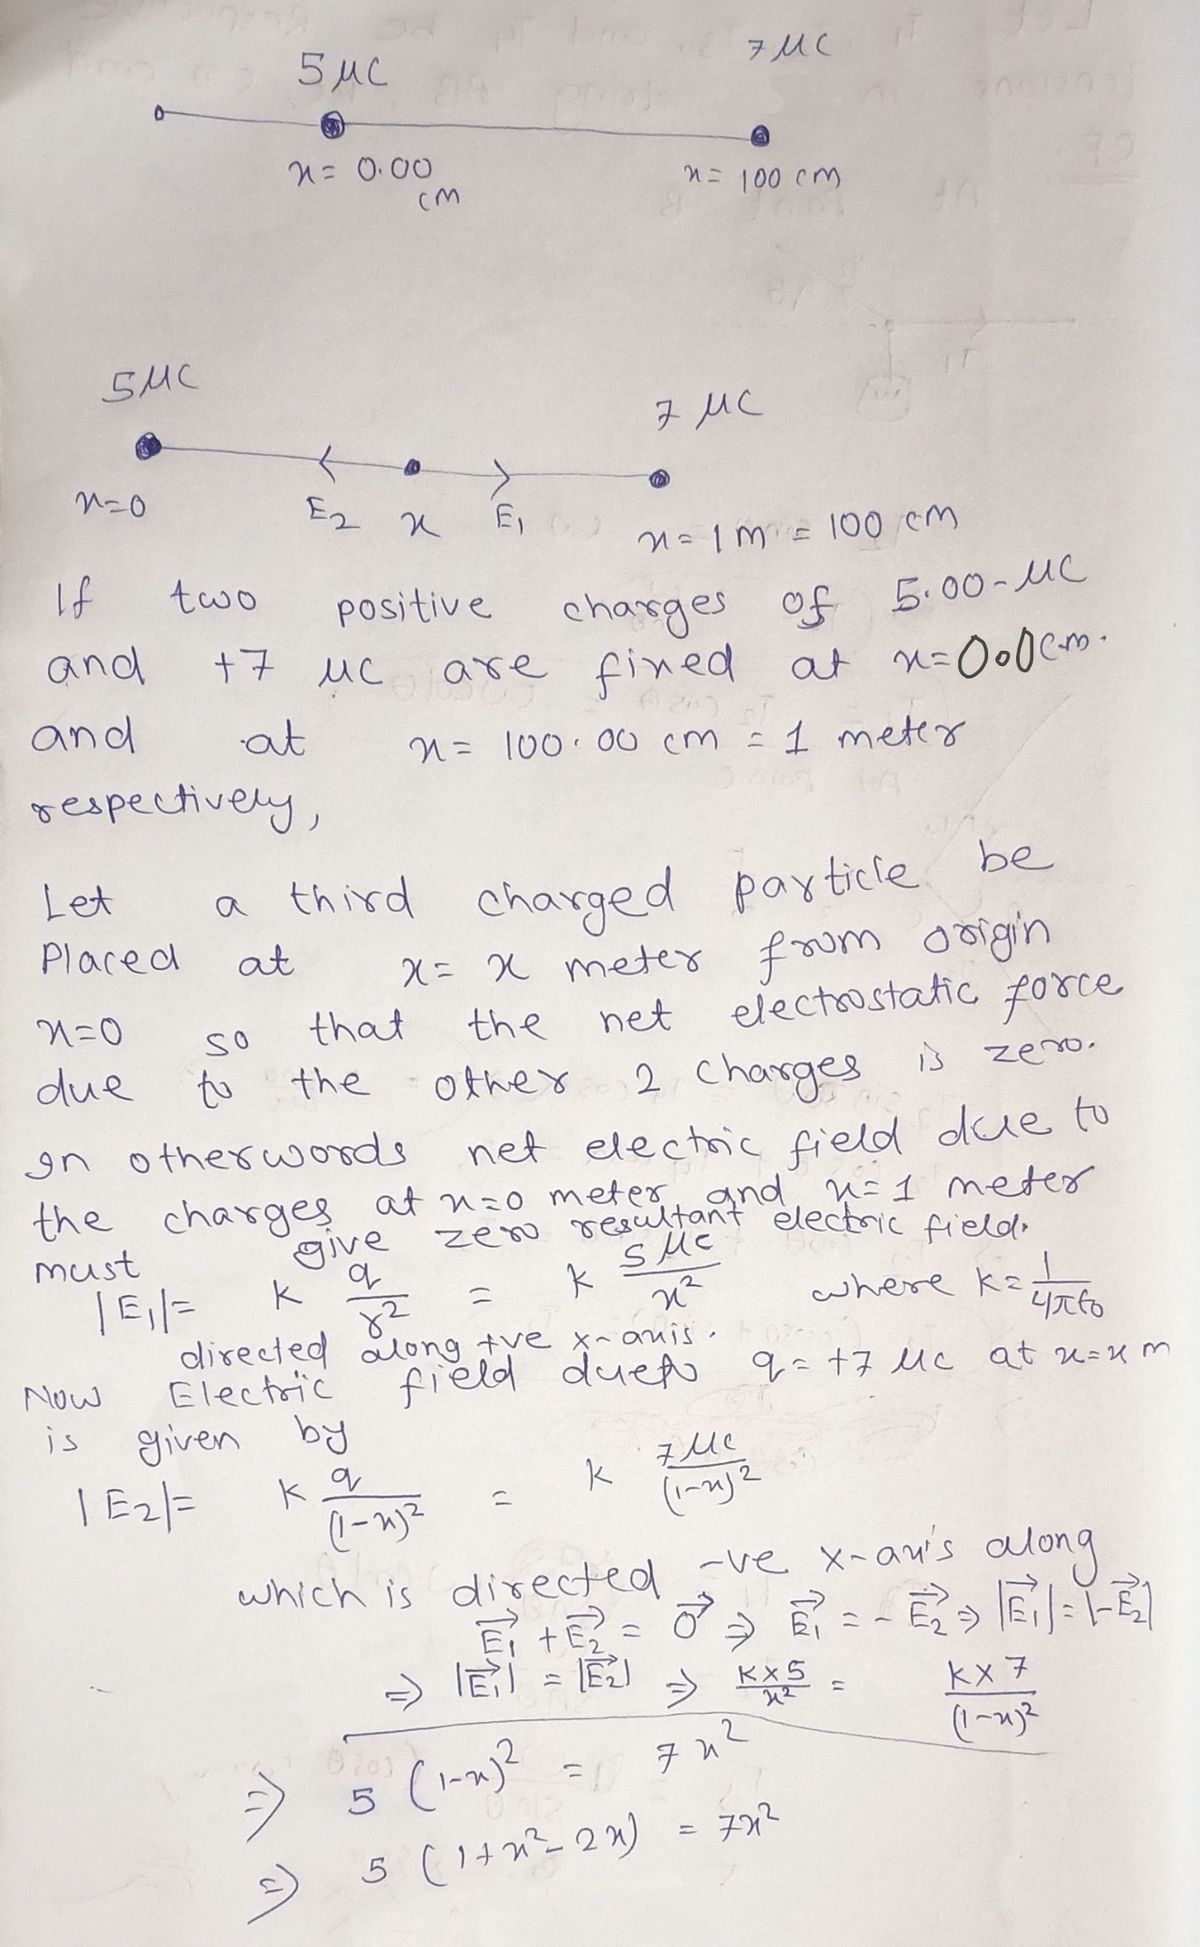 5 μC
7 μC
x = 0.00 cm
x = 100 cm
5 μC
7 μC
x=0
E2
x
E1
x = 1 m = 100 cm
If two positive charges of 5.00-μC
and +7 μC are fixed at x=0.0cm.
and at x= 100.00 cm = 1 meter
respectively,
Let a third charged particle be
Placed at x= x meter from origin
x=0 so that the net electrostatic force
due to the other 2 charges is zero.
In otherwords net electric field due to
the charges at x=0 meter and x=1 meter
must give zero resultant electric field.
|E1|= k q/r² = k 5 μC/x² where k = 1/4πε0
directed along +ve x-axis.
Now Electric field dueto q = +7 μC at x=x m
is given by
|E2|= k q/(1-x)² = k 7 μC/(1-x)²
which is directed -ve x-axis along
E⃗1 + E⃗2 = 0⃗ ⇒ E⃗1 = -E⃗2 ⇒ |E⃗1| = |-E⃗2|
⇒ |E⃗1| = |E⃗2| ⇒ K×5/x² = K×7/(1-x)²
⇒ 5 (1-x)² = 7x²
⇒ 5 (1+x²-2x) = 7x²